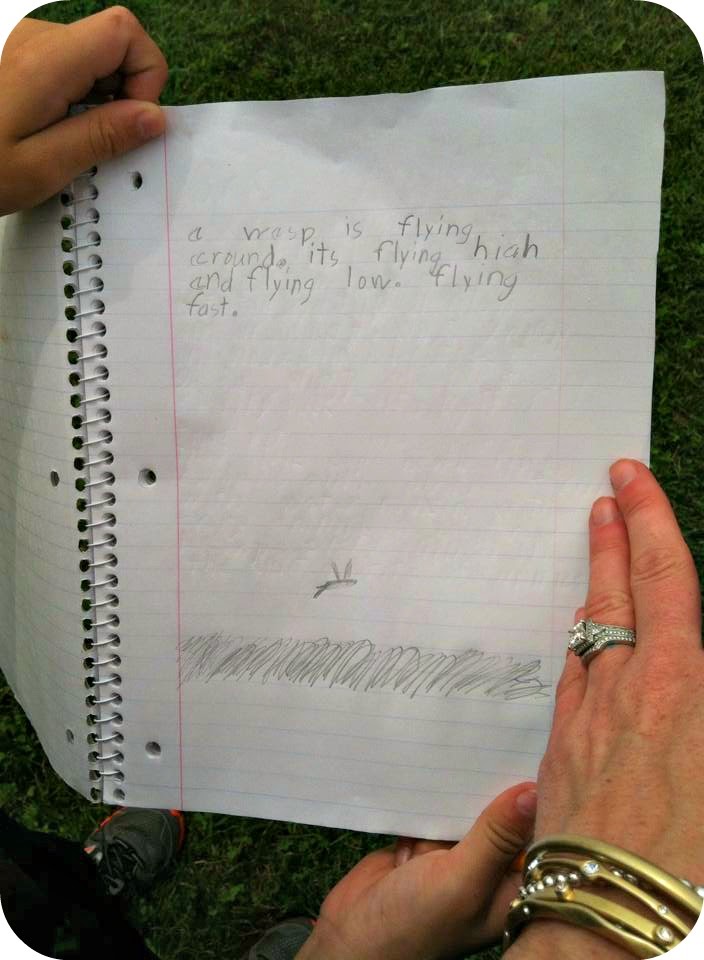 a wasp is flying
around. its flying high
and flying low. flying
fast.